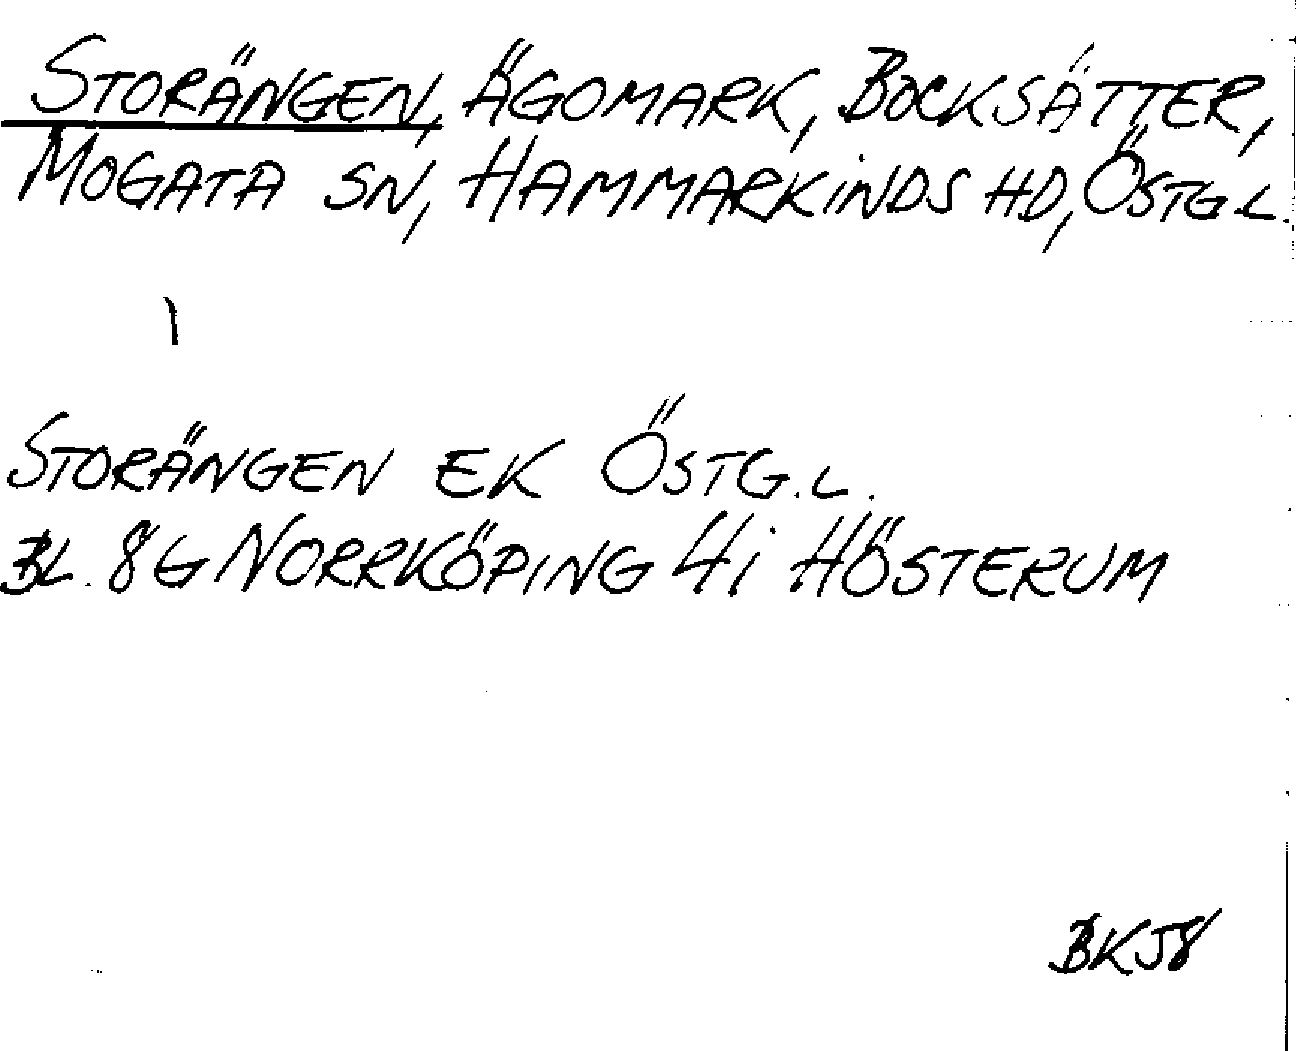 STORÄNGEN, ÄGOMARK, BOCKSÄTTER,
MOGATA SN, HAMMARKINDS HD, ÖSTG.L.
\
STORÄNGEN EK ÖSTG.L.
BL. 8G NORRKÖPING 4i HÖSTERUM
BKJ8